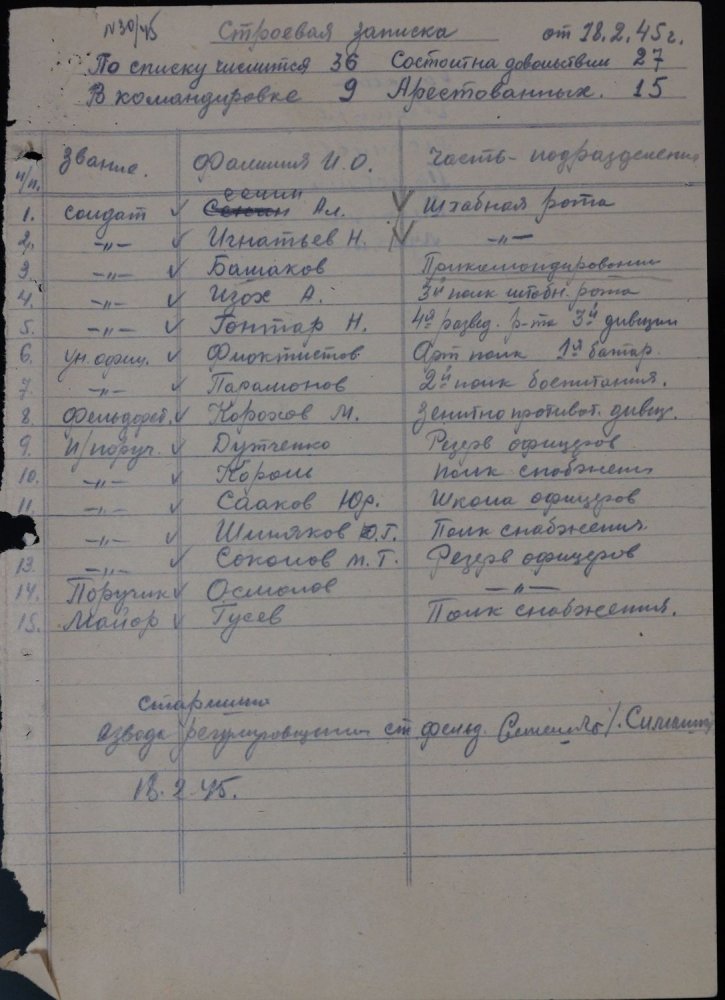 N30/45 Строевая записка от 18.2.45г.
По списку числится 36 Состоит на довольствии 27
В командировке 9 Арестованных. 15
н/п. Звание. Фамилия И.О. Часть-подразделения
сенин
1. солдат Ал. Штабная рота
2. -"- Игнатьев Н. -"-
3. -"- Башаков Прикомандирован
4. -"- Изох А. 3й полк штабн. рота
5. -"- Гонтар Н. 4я развед. р-та 3й дивизии
6. ун. офиц. Фиоктистов Арт полк 1я батар.
7. -"- Парамонов 2й полк воспитания.
8. Фельдфеб. Корохов М. Зенитно противот. дивиз.
9. П/поруч. Дутченко Резерв офицеров
10. -"- Король полк снабжения
11. -"- Сааков Юр. Школа офицеров
-"- Шиняков Ю.Г. Полк снабжения.
13. -"- Соколов М.Т. Резерв офицеров
14. Поручик Осмолов -"-
15. Майор Гусев Полк снабжения.
Старшина
взвода регулировщиков ст фельд.
18.2.45.